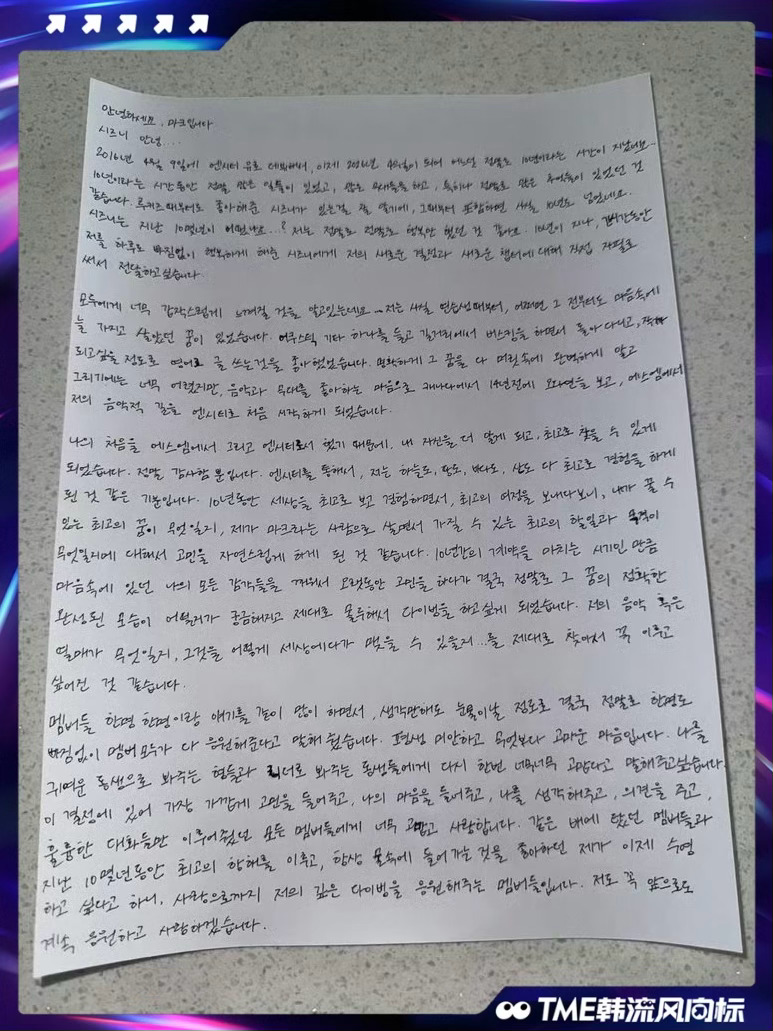 안녕하세요. 마크입니다
시즈니 안녕...
2016년 4월 9일에 엔시티 유로 데뷔해서, 이제 2026년 4월이 되어 어느덧 정말로 10년이라는 시간이 지났네요..
10년이라는 시간동안 정말 많은 일들이 있었고, 많은 무대들을 하고, 특히나 정말로 많은 추억들이 있었던 것
같습니다. 루키즈때부터도 좋아해준 시즈니가 있는걸 잘 알기에, 그때부터 포함하면 사실 10년도 넘었네요.
시즈니는 지난 10몇년이 어땠나요...? 저는 정말로 정말로 행복만 했던 것 같아요. 10년이 지나, 시간동안
저를 하루도 빠짐없이 행복하게 해준 시즈니에게 저의 새로운 결정과 새로운 챕터에 대해 직접 자필로
써서 전달하고싶습니다.
모두에게 너무 갑작스럽게 느껴질 것을 알고있는데요... 저는 사실 연습생때부터, 어쩌면 그 전부터도 마음속에
늘 가지고 살았던 꿈이 있었습니다. 어쿠스틱 기타 하나를 들고 길거리에서 버스킹을 하면서 돌아다니고,
되고싶을 정도로 영어로 글 쓰는것을 좋아했었습니다. 명확하게 그 꿈을 다 머릿속에 완벽하게 알고
그리기에는 너무 어렸지만, 음악과 무대를 좋아하는 마음으로 캐나다에서 14년전에 오디션을 보고, 에스엠에서
저의 음악적 길을 엔시티로 처음 시작하게 되었습니다.
나의 처음을 에스엠에서 그리고 엔시티로서 했기 때문에, 내 자신을 더 알게 되고, 최고로 찾을 수 있게
되었습니다. 정말 감사할 뿐입니다. 엔시티를 통해서, 저는 하늘도, 땅도, 바다도, 산도 다 최고로 경험을 하게
된 것 같은 기분입니다. 10년동안 세상을 최고로 보고 경험하면서, 최고의 여정을 보내다보니, 내가 꿀 수
있는 최고의 꿈이 무엇일지, 제가 마크라는 사람으로 살면서 가질 수 있는 최고의 할일과 목적이
무엇일지에 대해서 고민을 자연스럽게 하게 된 것 같습니다. 10년간의 계약을 마치는 시기인 만큼
마음속에 있던 나의 모든 감각들을 깨워서 오랫동안 고민을 하다가 결국 정말로 그 꿈의 정확한
완성된 모습이 어떨지가 궁금해지고 제대로 몰두해서 다이빙을 하고싶게 되었습니다. 저의 음악 혹은
열매가 무엇일지, 그것을 어떻게 세상에다가 맺을 수 있을지...를 제대로 찾아서 꼭 이루고
싶어진 것 같습니다.
멤버들 한명 한명이랑 얘기를 같이 많이 하면서, 생각만해도 눈물이날 정도로 결국 정말로 한명도
빠짐없이 멤버 모두가 다 응원해준다고 말해 줬습니다. 평생 미안하고 무엇보다 고마운 마음입니다. 나를
귀여운 동생으로 봐주는 형들과 리더로 봐주는 동생들에게 다시 한번 너무너무 고맙다고 말해주고싶습니다.
이 결정에 있어 가장 가깝게 고민을 들어주고, 나의 마음을 들어주고, 나를 생각해주고, 의견을 주고,
훌륭한 대화들만 이루어줬던 모든 멤버들에게 너무 고맙고 사랑합니다. 같은 배에 탔던 멤버들과
지난 10몇년동안 최고의 항해를 이루고, 항상 물속에 들어가는 것을 좋아하던 제가 이제 수영
하고 싶다고 하니, 사랑으로까지 저의 깊은 다이빙을 응원해주는 멤버들입니다. 저도 꼭 앞으로도
계속 응원하고 사랑하겠습니다.
TME韩流风向标